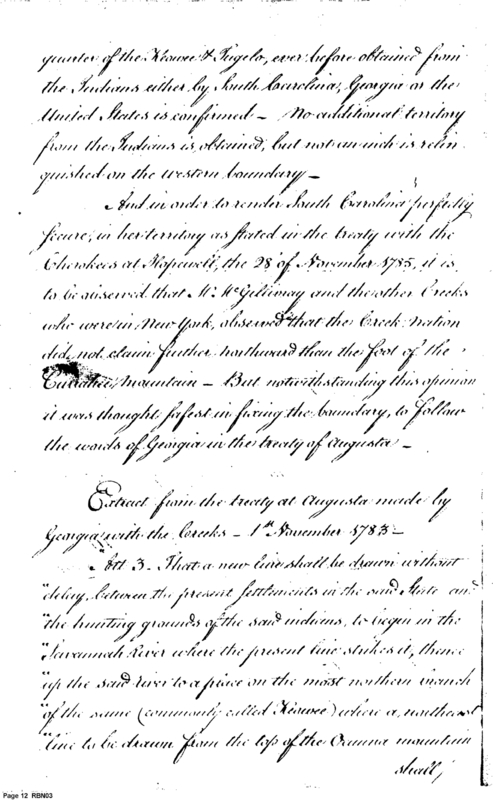 quarter of the Keowee & Tugelo, ever before obtained from
the Indians either by South Carolina, Georgia or the
United States is confirmed - No additional territory
from the Indians is obtained, but not an inch is relin
quished on the western boundary -
And in order to render South Carolina perfectly
secure, in her territory as stated in the treaty with the
Cherokees at Hopewell, the 28 of November 1785, it is
to be observed that Mr. McGillivray and the other Creeks
who were in New York, observed that the Creek nation
did not claim further northward than the foot of the
mountain - But notwithstanding this opinion
it was thought safest in fixing the boundary, to follow
the words of Georgia in the treaty of Augusta -
Extract from the treaty at Augusta made by
Georgia with the Creeks - 1st November 1783 -
"Art 3 - That a new line shall be drawn without
"delay, between the present settlements in the said State and
"the hunting grounds of the said indians, to begin in the
"Savannah River where the present line strikes it, thence
"up the said river to a place on the most northern branch
"of the same (commonly called Keowee) where a, northeast
"line to be drawn from the top of the Ocunna mountain
shall,
Page 12 RBN03